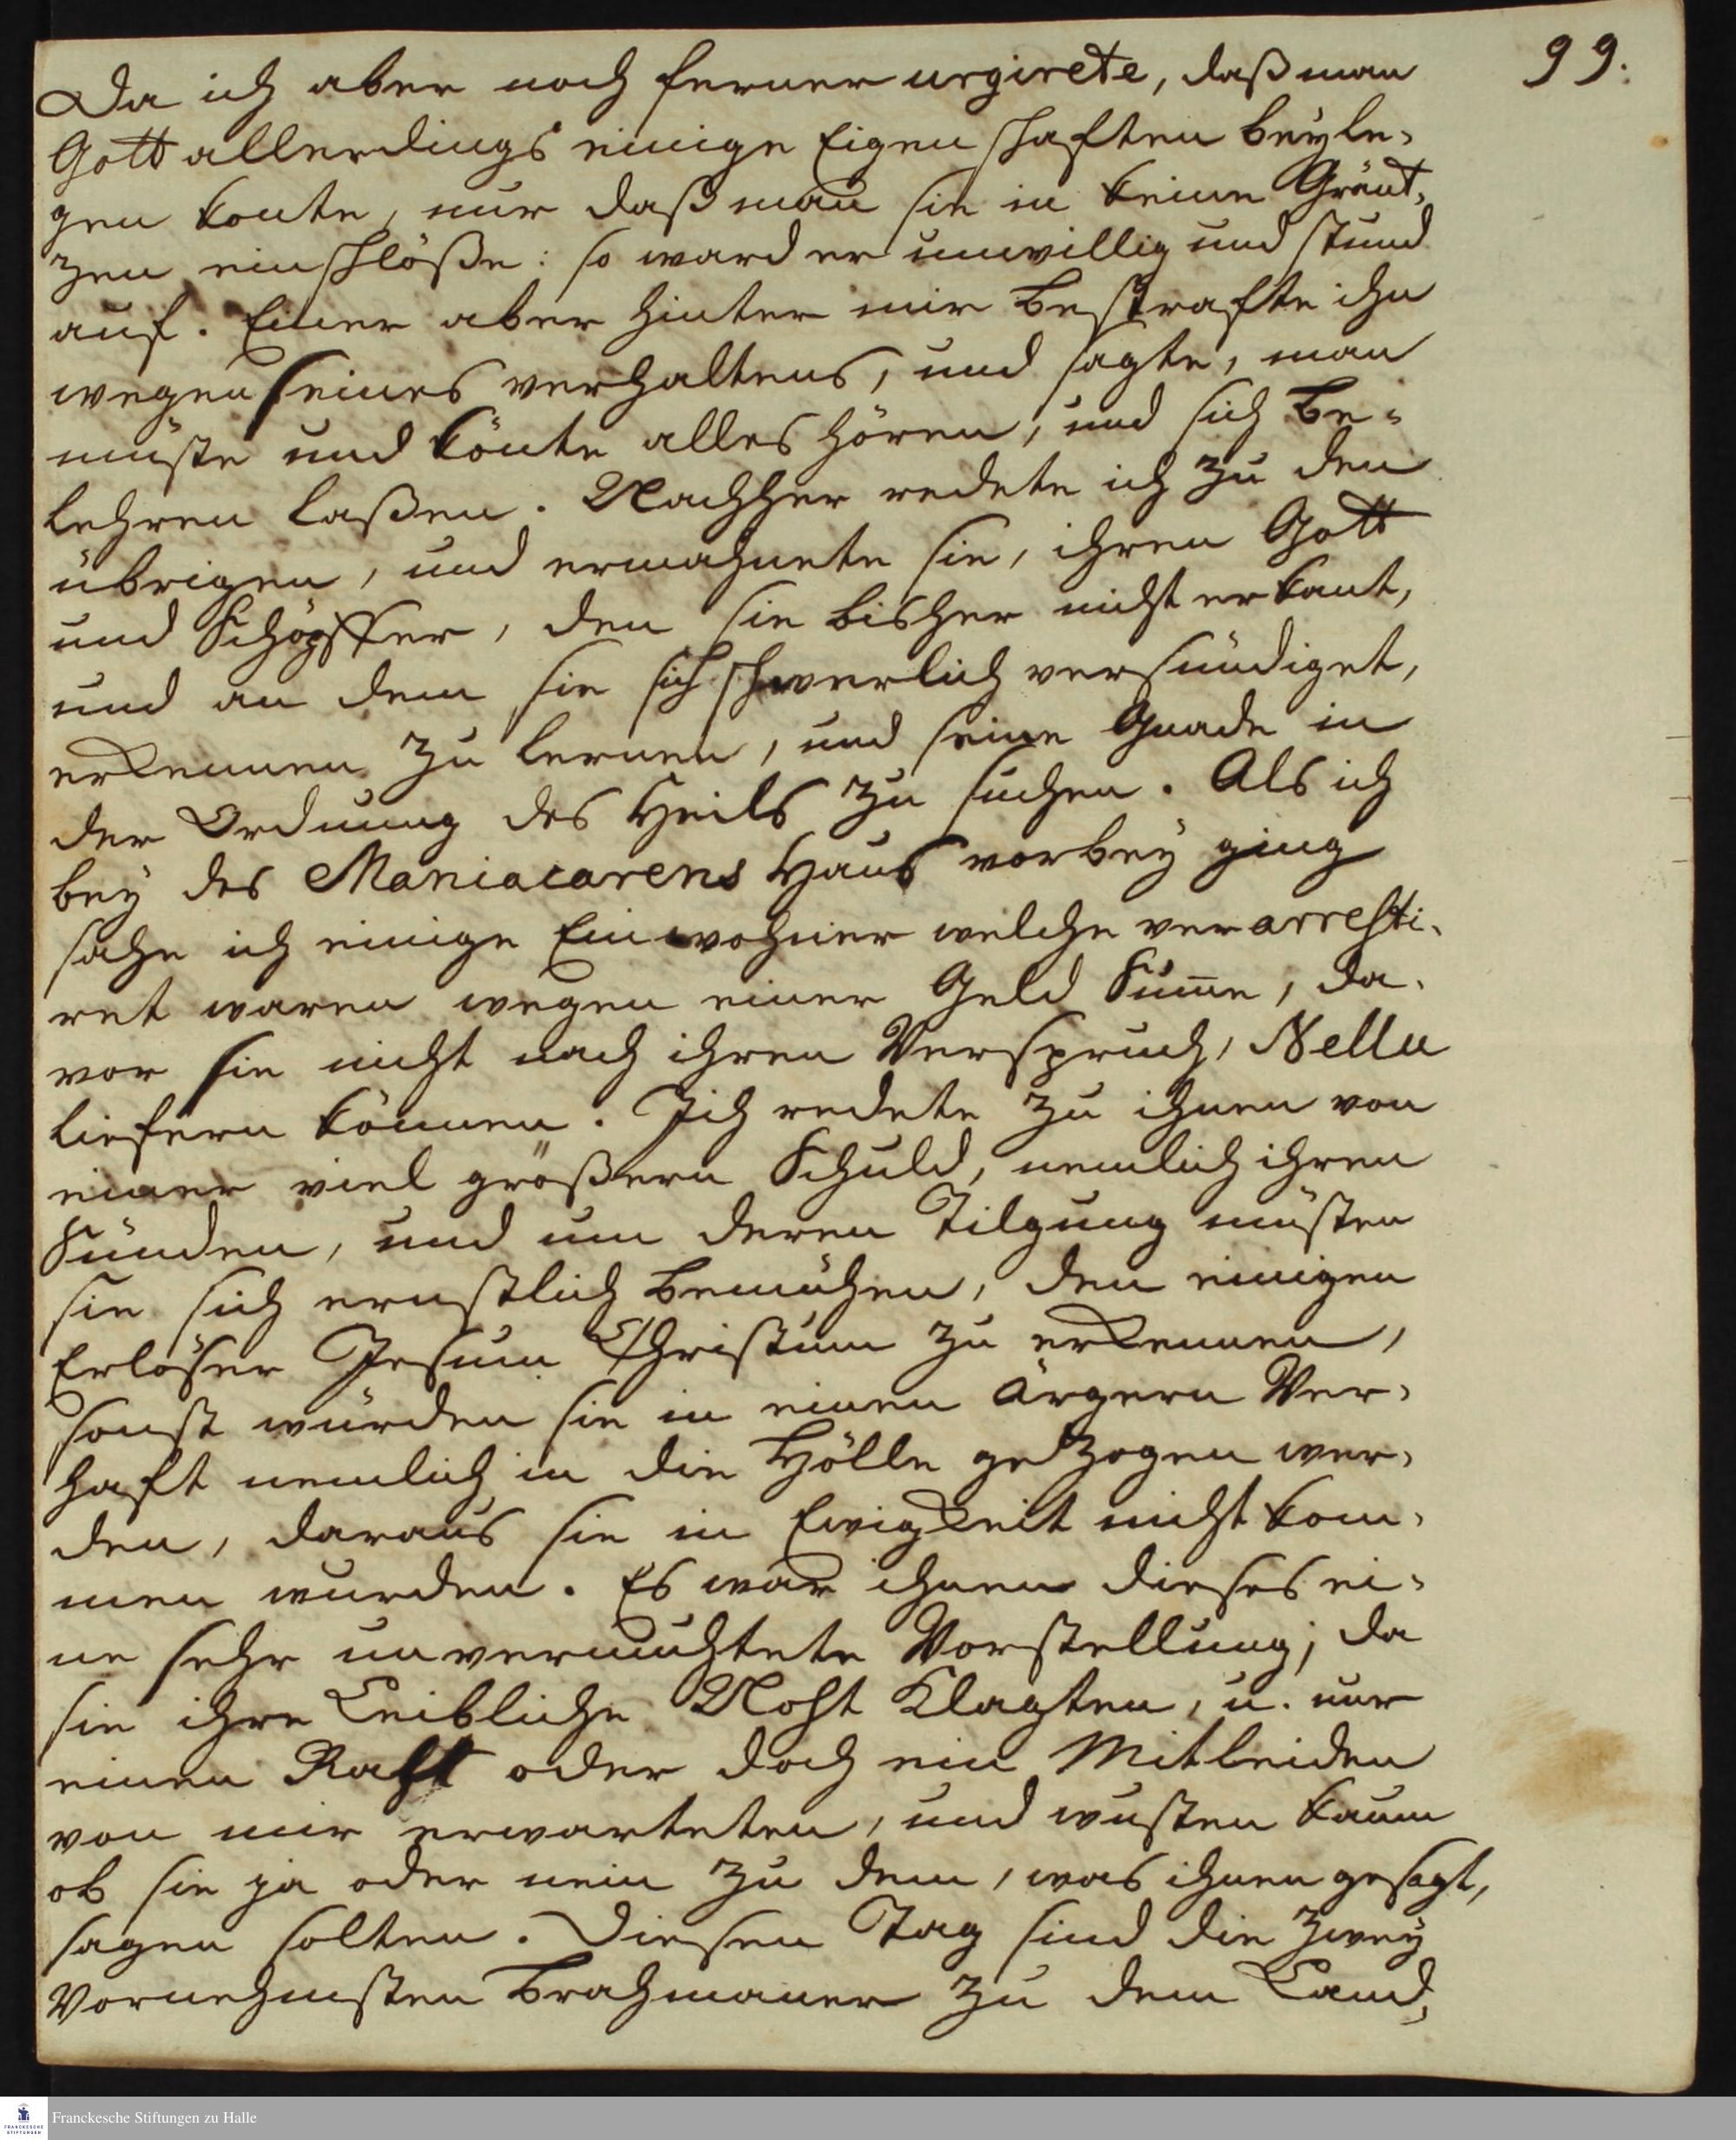 99.
Da ich aber noch ferner urgirete, daß man
Gott allerdings einige Eigenschaften beyle-
gen konte, nur daß man sie in keine Gränt-
zen einschlöße: so ward er unwillig und stund
auf. Einer aber hinter mir bestrafte ihn
wegen seines verhaltens, und sagte, man
müste und könte alles hören, und sich be-
lehren laßen. Nachher redete ich zu den
übrigen, und ermahnete sie, ihren Gott
und Schöpffer, den sie bisher nicht erkant,
und an dem sie sich schwerlich versündiget,
erkennen zu lernen, und seine Gnade in
der Ordnung des Heils zu suchen. Als ich
bey des Maniacarens Haus vorbey ging
sahe ich einige Einwohner welche verarresti-
ret waren wegen einer Geld Sum̅e, da-
vor sie nicht nach ihren Verspruch, Nellu
liefern können. Ich redete zu ihnen von
einer viel größern Schuld, nemlich ihren
Sünden, und um deren Tilgung müsten
sie sich ernstlich bemühen, den einigen
Erlöser Jesum Christum zu erkennen,
sonst würden sie in einen ärgern Ver-
haft nemlich in die Hölle gezogen wer-
den, daraus sie in Ewigkeit nicht kom-
men wurden. Es war ihnen dieses ei-
ne sehr unvermuhtete Vorstellung, da
sie ihre Leibliche Noht klagten, u. nur
einen Raht oder doch ein Mitleiden
von mir erwarteten, und wusten kaum
ob sie ja oder nein zu dem, was ihnen gesagt,
sagen solten. Diesen Tag sind die zwey
Vornehmsten Brahmaner zu dem Land-
Franckesche Stiftungen zu Halle